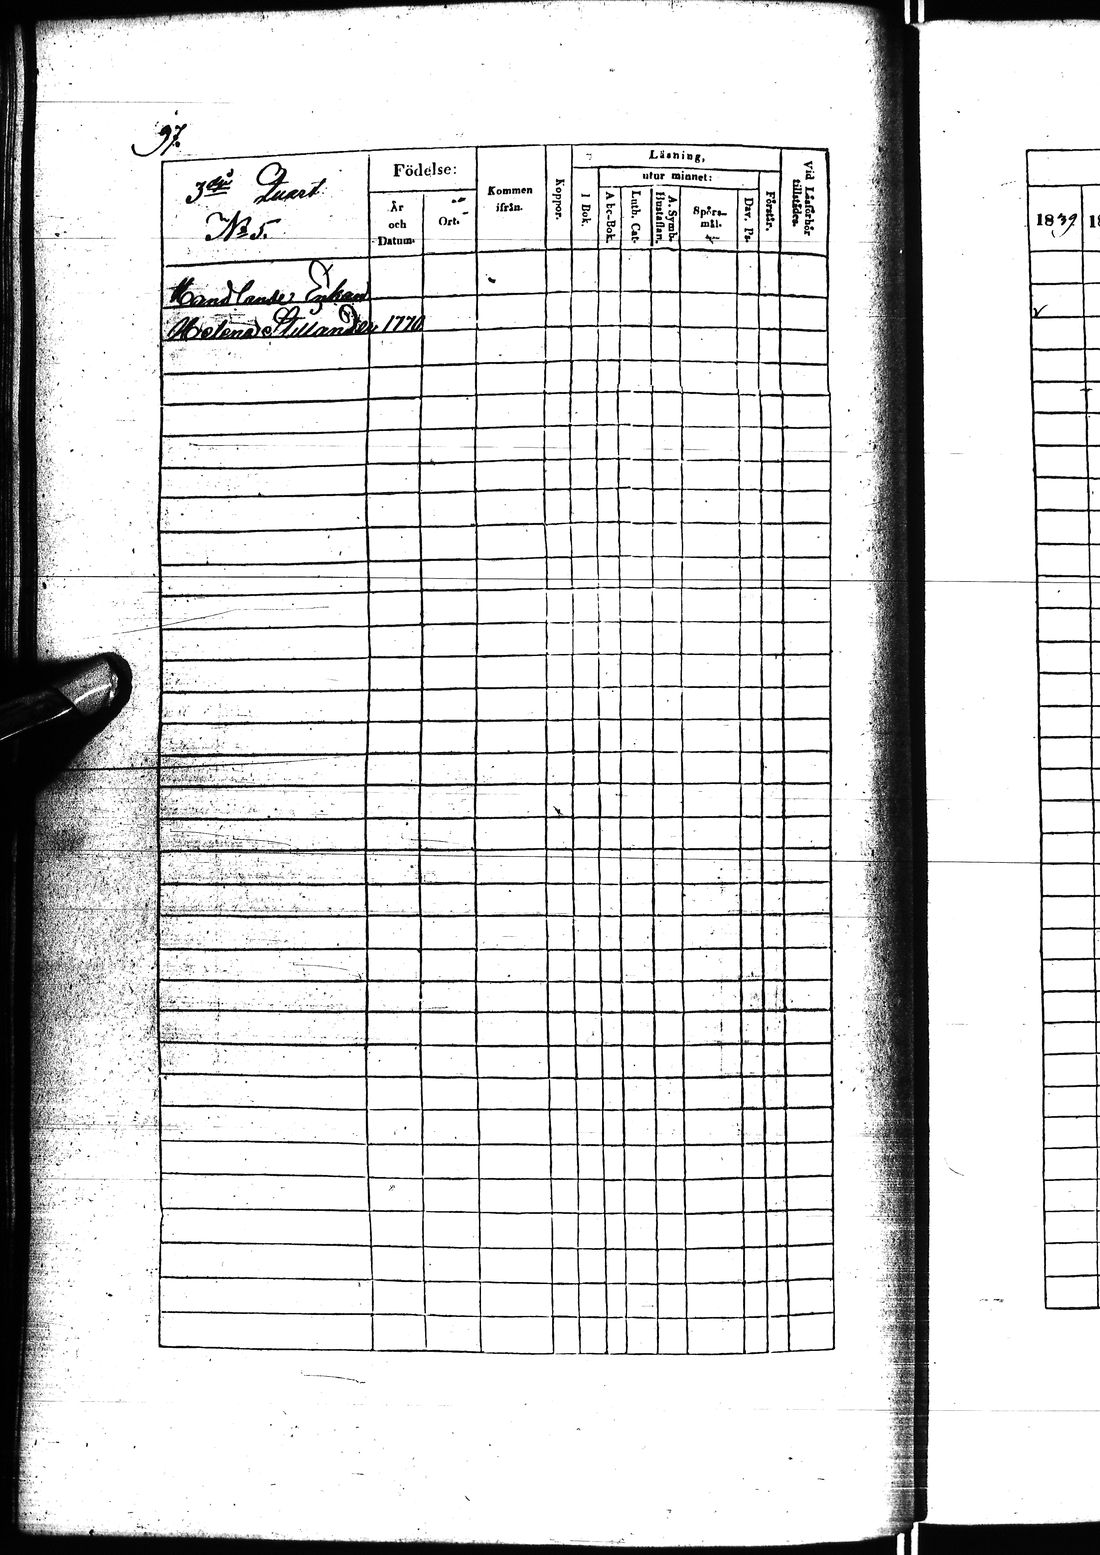 97.
3dje Quart.
No 5.
Födelse:
År
och
Datum.
Ort.
Kommen
ifrån.
Koppor.
Läsning,
utur minnet:
I Bok.
Abc-Bok.
Luth. Cat.
A. Symb.
Hustaflan.
Spörs-
mål.
Dav. Ps.
Förstår.
Vid Läsförhör
tillstädes.
Handlande Enkan
Helena 1770
1839
18